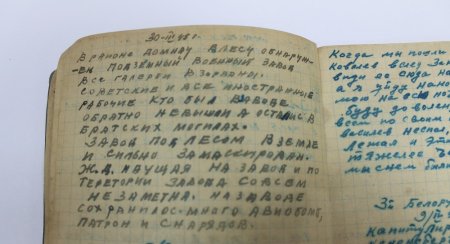 30-IV 45 г.
В РАЙОНЕ ДОМНАУ В ЛЕСУ ОБНАРУЖ-
ЕН ПОДЗЕМНЫЙ ВОЕННЫЙ ЗАВОД
ВСЕ ГАЛЕРЕИ ВЗОРВАНЫ.
СОВЕТСКИЕ И ВСЕ ИНОСТРАННЫЕ
РАБОЧИЕ КТО БЫЛ В ЗАВОДЕ
ОБРАТНО НЕ ВЫШЛИ А ОСТАЛИСЬ В
БРАТСКИХ МОГИЛАХ.
ЗАВОД ПОД ЛЕСОМ В ЗЕМЛЕ
И СИЛЬНО ЗАМАССИРОВАН.
Ж.Д. ИДУЩАЯ НА ЗАВОД И ПО
ТЕРЕТОРИИ ЗАВОДА СОВСЕМ
НЕ ЗАМЕТНА. НА ЗАВОДЕ
СОХРАНИЛОСЬ МНОГО АВИОБОМБ,
ПАТРОН И СНАРЯДОВ.
Когда мы пошли
Ковалев
виду до сюда
а я пойду
мою на
буду до
всем по своим
Василев
Лежал и
тяжелее
мы с ним были
3й Белор
9/
Капиту